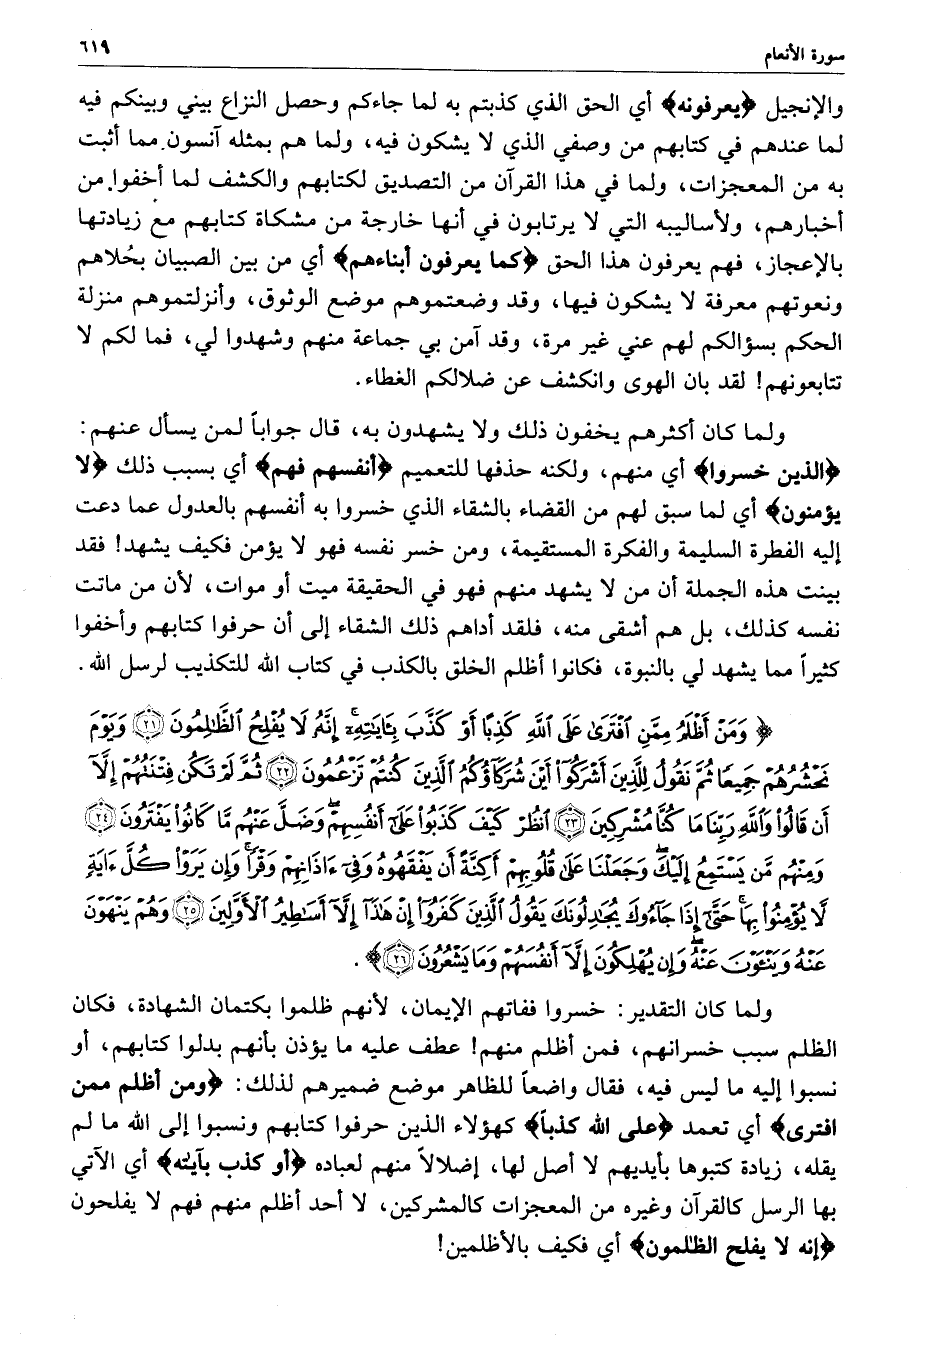 سورة الأنعام ٦١٩
والإنجيل ﴿يعرفونه﴾ أي الحق الذي كذبتم به لما جاءكم وحصل النزاع بيني وبينكم فيه
لما عندهم في كتابهم من وصفي الذي لا يشكون فيه، ولما هم بمثله آنسون مما أثبت
به من المعجزات، ولما في هذا القرآن من التصديق لكتابهم والكشف لما أخفوا من
أخبارهم، ولأساليبه التي لا يرتابون في أنها خارجة من مشكاة كتابهم مع زيادتها
بالإعجاز، فهم يعرفون هذا الحق ﴿كما يعرفون أبناءهم﴾ أي من بين الصبيان بحُلاهم
ونعوتهم معرفة لا يشكون فيها، وقد وضعتموهم موضع الوثوق، وأنزلتموهم منزلة
الحكم بسؤالكم لهم عني غير مرة، وقد آمن بي جماعة منهم وشهدوا لي، فما لكم لا
تتابعونهم! لقد بان الهوى وانكشف عن ضلالكم الغطاء.
ولما كان أكثرهم يخفون ذلك ولا يشهدون به، قال جواباً لمن يسأل عنهم:
﴿الذين خسروا﴾ أي منهم، ولكنه حذفها للتعميم ﴿أنفسهم فهم﴾ أي بسبب ذلك ﴿لا
يؤمنون﴾ أي لما سبق لهم من القضاء بالشقاء الذي خسروا به أنفسهم بالعدول عما دعت
إليه الفطرة السليمة والفكرة المستقيمة، ومن خسر نفسه فهو لا يؤمن فكيف يشهد! فقد
بينت هذه الجملة أن من لا يشهد منهم فهو في الحقيقة ميت أو موات، لأن من ماتت
نفسه كذلك، بل هم أشقى منه، فلقد أداهم ذلك الشقاء إلى أن حرفوا كتابهم وأخفوا
كثيراً مما يشهد لي بالنبوة، فكانوا أظلم الخلق بالكذب في كتاب الله للتكذيب لرسل الله.
﴿وَمَنْ أَظْلَمُ مِمَّنِ ٱفْتَرَىٰ عَلَى ٱللَّهِ كَذِبًا أَوْ كَذَّبَ بِـَٔايَـٰتِهِۦٓ ۗ إِنَّهُۥ لَا يُفْلِحُ ٱلظَّـٰلِمُونَ ﴿٢١﴾ وَيَوْمَ
نَحْشُرُهُمْ جَمِيعًا ثُمَّ نَقُولُ لِلَّذِينَ أَشْرَكُوٓا۟ أَيْنَ شُرَكَآؤُكُمُ ٱلَّذِينَ كُنتُمْ تَزْعُمُونَ ﴿٢٢﴾ ثُمَّ لَمْ تَكُن فِتْنَتُهُمْ إِلَّآ
أَن قَالُوا۟ وَٱللَّهِ رَبِّنَا مَا كُنَّا مُشْرِكِينَ ﴿٢٣﴾ ٱنظُرْ كَيْفَ كَذَبُوا۟ عَلَىٰٓ أَنفُسِهِمْ ۚ وَضَلَّ عَنْهُم مَّا كَانُوا۟ يَفْتَرُونَ ﴿٢٤﴾
وَمِنْهُم مَّن يَسْتَمِعُ إِلَيْكَ ۖ وَجَعَلْنَا عَلَىٰ قُلُوبِهِمْ أَكِنَّةً أَن يَفْقَهُوهُ وَفِىٓ ءَاذَانِهِمْ وَقْرًا ۚ وَإِن يَرَوْا۟ كُلَّ ءَايَةٍ
لَّا يُؤْمِنُوا۟ بِهَا ۚ حَتَّىٰٓ إِذَا جَآءُوكَ يُجَـٰدِلُونَكَ يَقُولُ ٱلَّذِينَ كَفَرُوٓا۟ إِنْ هَـٰذَآ إِلَّآ أَسَـٰطِيرُ ٱلْأَوَّلِينَ ﴿٢٥﴾ وَهُمْ يَنْهَوْنَ
عَنْهُ وَيَنْـَٔوْنَ عَنْهُ ۖ وَإِن يُهْلِكُونَ إِلَّآ أَنفُسَهُمْ وَمَا يَشْعُرُونَ ﴿٢٦﴾﴾.
ولما كان التقدير: خسروا ففاتهم الإيمان، لأنهم ظلموا بكتمان الشهادة، فكان
الظلم سبب خسرانهم، فمن أظلم منهم! عطف عليه ما يؤذن بأنهم بدلوا كتابهم، أو
نسبوا إليه ما ليس فيه، فقال واضعاً للظاهر موضع ضميرهم لذلك: ﴿ومن أظلم ممن
افترى﴾ أي تعمد ﴿على الله كذباً﴾ كهؤلاء الذين حرفوا كتابهم ونسبوا إلى الله ما لم
يقله، زيادة كتبوها بأيديهم لا أصل لها، إضلالاً منهم لعباده ﴿أو كذب بآيٰته﴾ أي الآتي
بها الرسل كالقرآن وغيره من المعجزات كالمشركين، لا أحد أظلم منهم فهم لا يفلحون
﴿إنه لا يفلح الظٰلمون﴾ أي فكيف بالأظلمين!